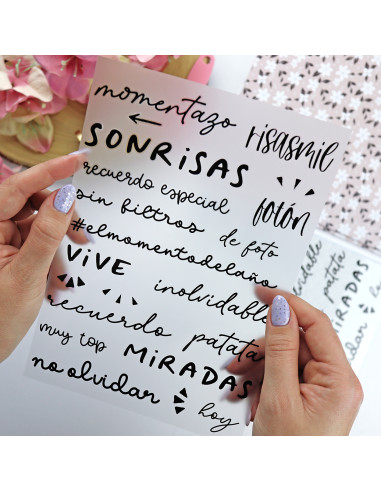 momentazo
risasmil
SONRISAS
recuerdo especial
fotón
sin filtros
de foto
#elmomentodelaño
ViVE
inolvidable
recuerdo
patata
muy top
MiRADAS
no olvidar
hoy
patata
MiRADAS